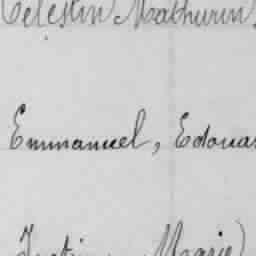 Célestin Mathurin
Emmanuel, Edouar
Marie)